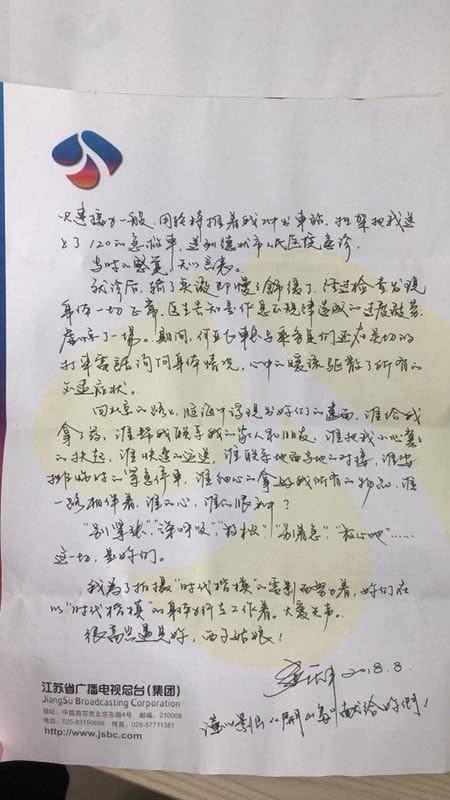 般,用轮椅推着我冲出车站,担架把我送
上了120的急救车,送到德州市人民医院急诊。
当时的感觉,无以言表。
就诊后,输了点液即慢慢舒缓了,经过检查发现
身体一切正常,医生告知是作息不规律造成的过度疲劳,
虚惊了一场。期间,何亚民车长与乘务员们还在关切的
打来电话询问身体情况,心中的暖流驱散了所有的
不适症状。
回北京的路上,脑海中浮现出好们的画面,谁给我
拿了药,谁帮我联系我的家人和朋友,谁把我小心翼翼
的扶起,谁快速的运送,谁联系地面当地的对接,谁安
排临时的紧急停车,谁细心的拿好我所有的物品,谁
一路相伴着,谁的心,谁的眼神?
“别紧张”,“深呼吸”,“别着急”,“放心吧”……
这一切,是好们。
我为了拍摄“时代楷模”的电影而努力着,好们在
以“时代楷模”的身体力行在工作着。大爱无声。
很高兴遇见好,西子姑娘!
2018.8.
献给好們!
江苏省广播电视总台(集团)
JiangSu Broadcasting Corporation
地址:中国南京市北京东路4号 邮编:210008
电话:025-83195666 传真:025-57711381
http://www.jsbc.com